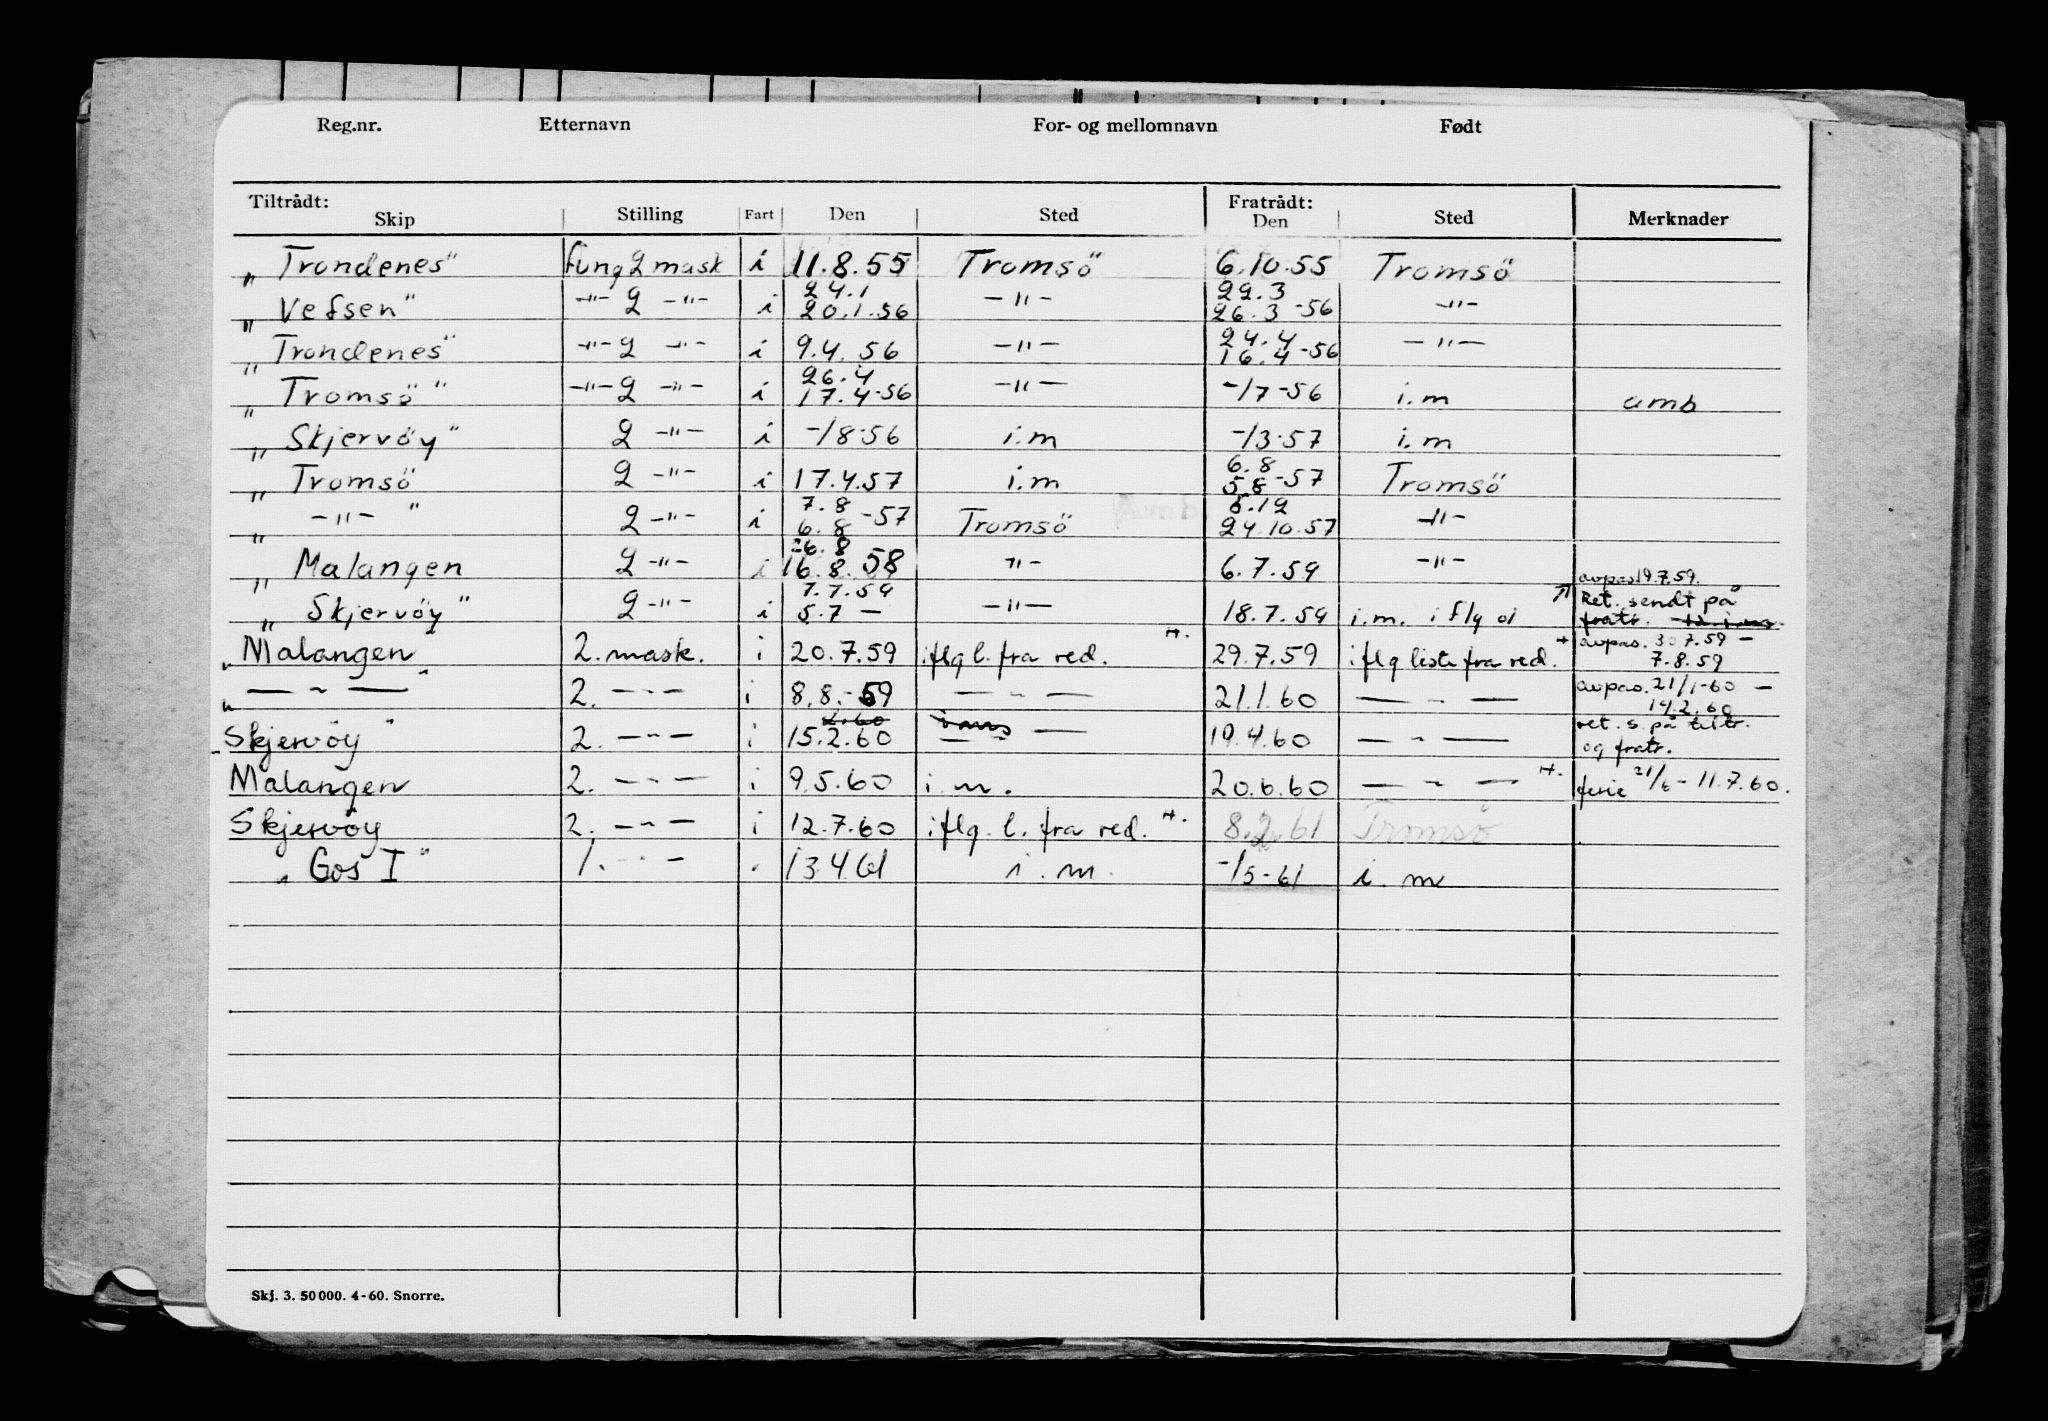 Reg.nr. Etternavn For- og mellomnavn Født
Tiltrådt: Fratrådt:
Skip Stilling Fart Den Sted Den Sted Merknader
„ Trondenes" fung 2 mask i 11.8.55 Tromsö 6.10.55 Tromsö
24.1 22.3
„ Vefsen" -"- 2 -"- i 20.1.56 -"- 26.3-56 -"-
24.4
„ Trondenes" -"- 2 -"- i 9.4.56 -"- 16.4-56 -"-
26.4
„ Tromsö" -"- 2 -"- i 17.4-56 -"- -/7-56 i.m amb
„ Skjervöy" 2 -"- i -/8-56 i.m -/3-57 i.m
6.8
„ Tromsö 2 -"- i 17.4.57 i.m 5.8-57 Tromsö
7.8 5.12
„ -"- " 2 -"- i 6.8-57 Tromsö 24.10.57 -"-
26.8
„ Malangen 2 -"- i 16.8.58 -"- 6.7.59 -"-
7.7.59 avpas 19.7.59.
„ Skjervöy" 2 -"- i 5.7 — -"- 18.7.59 i.m. i flg Ret. sendt på
fratr.
„ Malangen 2. mask. i 20.7.59 iflg l. fra red. +. 29.7.59 iflg liste fra red. + avpas. 30.7.59 —
7.8.59
„ — " — " 2. -"- i 8.8.-59 — " — 21.1.60 — " — avpas. 21/1-60 —
14.2.60
„ Skjervöy" 2. -"- i 15.2.60 — " — 19.4.60 — " — ret. s. på tiltr.
og fratr.
Malangen 2. -"- i 9.5.60 i.m. 20.6.60 — " — +. ferie 21/6 - 11.7.60.
Skjervöy 2. -"- i 12.7.60 iflg. l. fra red. +. 8.2.61 Tromsö
„ Gos I" 1. -"- . 13.4.61 i.m. -/5-61 i.m
Skj. 3. 50 000. 4-60. Snorre.